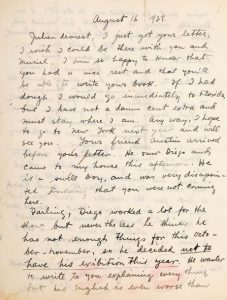 August 16 1939.
Julien dearest, I just got your letter,
I wish I could be there with you and
Muriel. I am so happy to know that
you had a nice rest and that you'll
be able to write your book. If I had
dough I would go immediately to Florida
but I have not a damn cent extra and
must stay where I am. Any way, I hope
to go to New York next year and will
see you. Yours friend Austin arrived
before your letter. He saw Diego and
came to my house this afternoon. He
is a swell boy, and was very disapoin-
ted knowing that you were not coming
here.
Darling, Diego worked a lot for the
show but never the less he thinks he
has not enough things for this octo-
ber-november, so he decided not to
have his exibition this year. He wanted
to write to you explaining every thing
but his English is even worse than